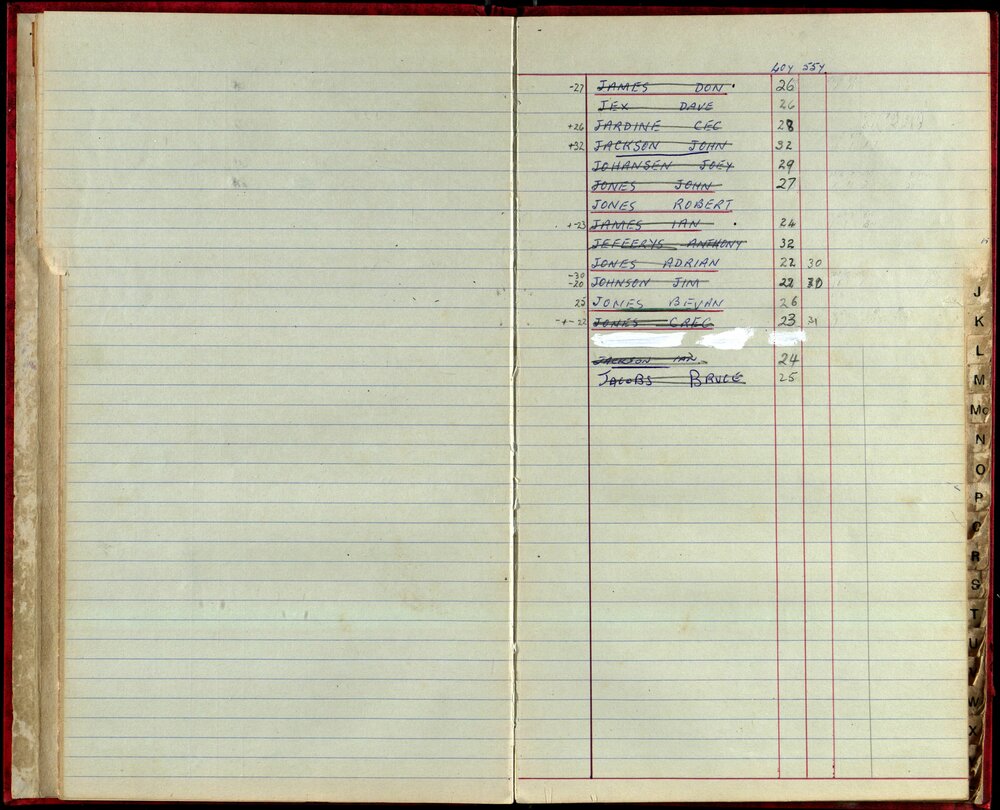 40Y 55Y
-27 JAMES DON 26
JEX DAVE 26
+26 JARDINE CEC 28
+32 JACKSON JOHN 32
JOHANSEN JOEY 29
JONES JOHN 27
JONES ROBERT
+-23 JAMES IAN 24
JEFFERYS ANTHONY 32
JONES ADRIAN 22 30
-30
-20 JOHNSON JIM 22 30
25 JONES BEVAN 26
-+-22 JONES GREG 23 31
JACKSON IAN 24
JACOBS BRUCE 25
J
K
L
M
Mc
N
O
P
Q
R
S
T
U
W
X